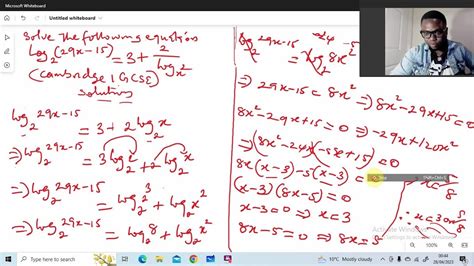 Microsoft Whiteboard
Untitled whiteboard
Solve the following equation
log₂(29x-15) = 3 + 2/logₓ2
(Cambridge IGCSE)
Solutions
log₂29x-15 = 3 + 2log₂x
⇒ log₂29x-15 = 3log₂2 + 2log₂x
⇒ log₂29x-15 = log₂2³ + log₂x²
⇒ log₂29x-15 = log₂8 + log₂x²
log₂29x-15 = log₂8x²
-24 -5
⇒ 29x-15 = 8x² ⇒ 8x²-29x+15=0
8x²-29x+15=0 ⇒ -29x, 120x²
⇒ (8x²-24x)(-5x+15)=0
8x(x-3)-5(x-3)
(x-3)(8x-5)=0
x-3=0 ⇒ x=3
8x-5=0 ⇒ 8x=5
8
∴ x=3 or 5/8
Activate Windows
10°C Cloudy
00:44
28/04/2023